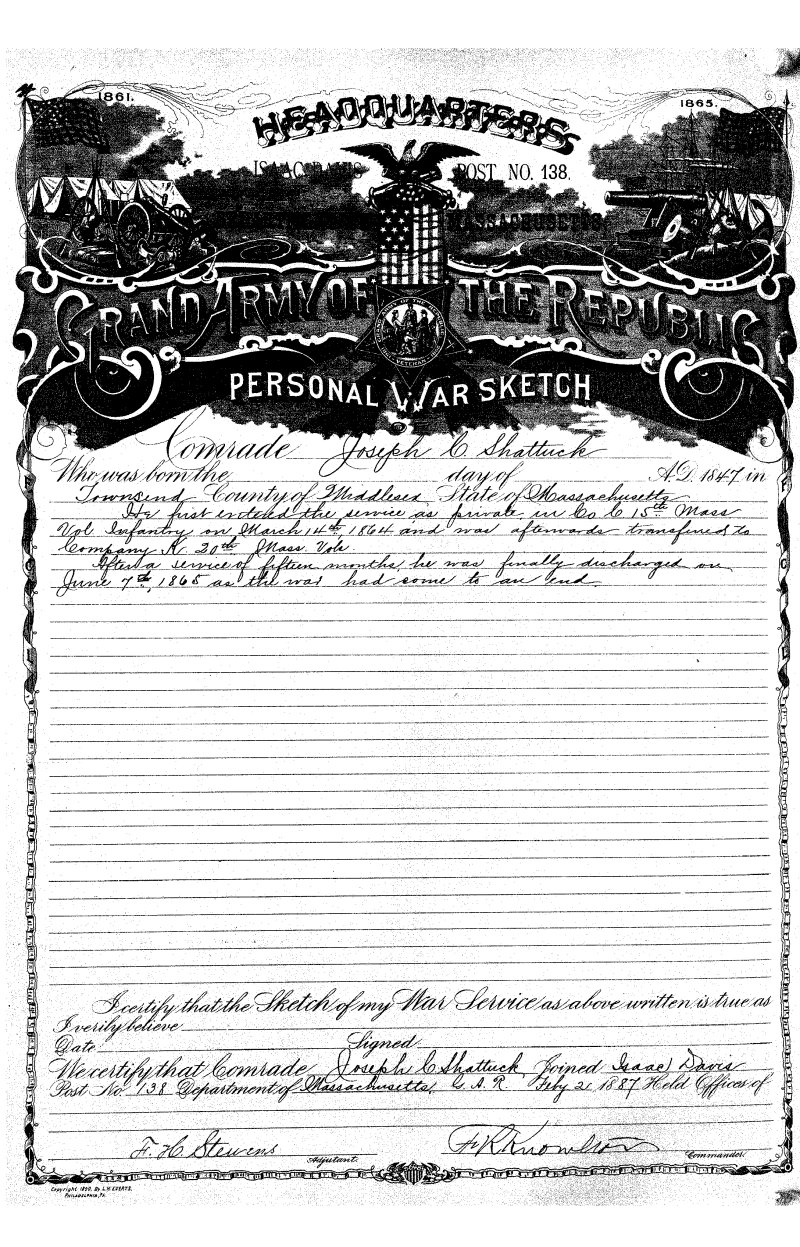 1861.
1865.
HEADQUARTERS
ISAAC DAVIS POST NO. 138.
MASSACHUSETTS
GRAND ARMY OF THE REPUBLIC
PERSONAL WAR SKETCH
Comrade Joseph C Shattuck
Who was born the day of A.D. 1847 in
Townsend County of Middlesex State of Massachusetts
He first entered the service as private in Co C 15th Mass
Vol Infantry on March 14th 1864 and was afterwards transferred to
Company K 20th Mass. Vols.
After a service of fifteen months, he was finally discharged on
June 7th, 1865 as the war had come to an end.
I certify that the Sketch of my War Service as above written is true as
I verily believe
Date Signed
We certify that Comrade Joseph C Shattuck Joined Isaac Davis
Post No. 138 Department of Massachusetts, G.A.R. Feby 2 1887 Held Offices of
F. H. Stevens Adjutant. F K Knowlton Commander.
Copyright 1890. By L.H. EVERTS.
PHILADELPHIA, PA.